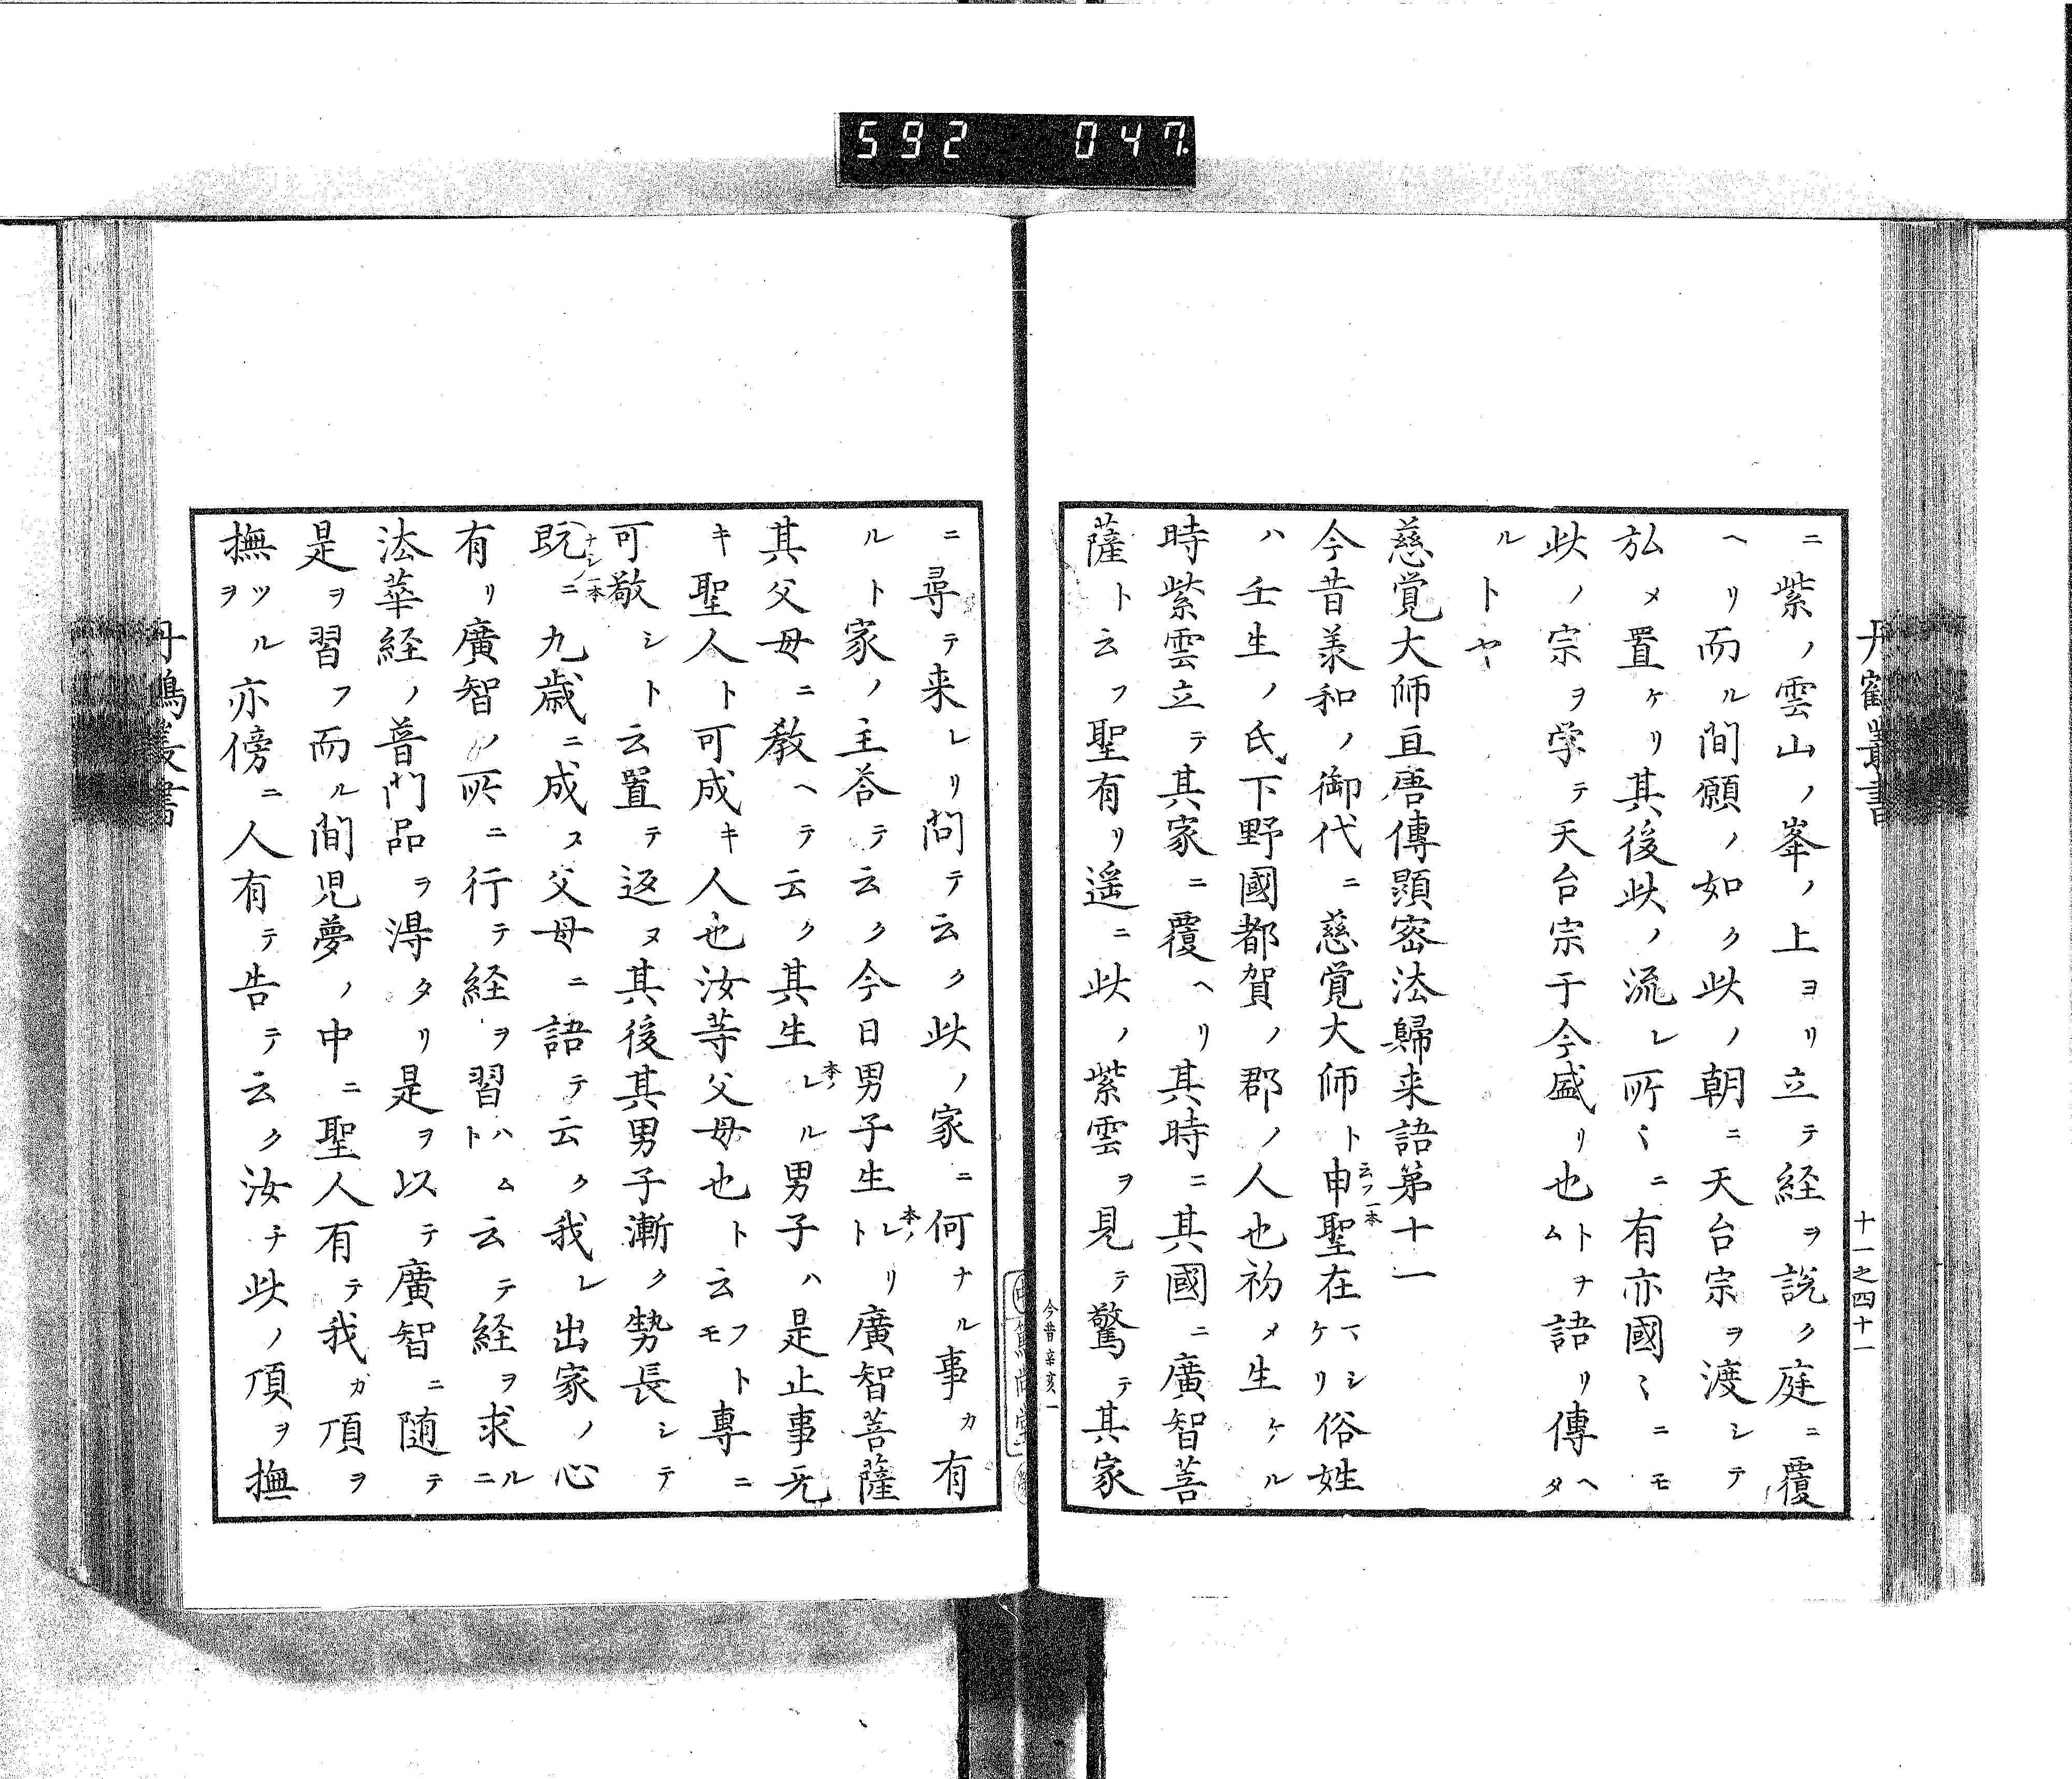 592 047
丹鶴叢書
十一之四十一
ニ紫ノ雲山ノ峯ノ上ヨリ立テ経ヲ説ク庭ニ覆
ヘリ而ル間願ノ如ク此ノ朝ニ天台宗ヲ渡シテ
弘メ置ケリ其後此ノ流レ所〻ニ有亦國〻ニモ
此ノ宗ヲ学テ天台宗于今盛リ也トナム語リ傳ヘタ
ルトヤ
慈覚大師亘唐傳顕密法歸来語第十一
今昔羕和ノ御代ニ慈覚大師ト申云フ一本聖在マシケリ俗姓
ハ壬生ノ氏下野國都賀ノ郡ノ人也初メ生ケル
時紫雲立テ其家ニ覆ヘリ其時ニ其國ニ廣智菩
薩ト云フ聖有リ遥ニ此ノ紫雲ヲ見テ驚テ其家
今昔辛亥一
ニ尋テ来レリ問テ云ク此ノ家ニ何ナル事カ有
ルト家ノ主荅テ云ク今日男子生レ本ノトリ廣智菩薩
其父母ニ教ヘテ云ク其生レ本ノル男子ハ是止事无
キ聖人ト可成キ人也汝等父母也ト云フトモト専ニ
可敬シト云置テ返ヌ其後其男子漸ク勢長シテ
既ニナシ一本九歳ニ成ヌ父母ニ語テ云ク我レ出家ノ心
有リ廣智ノ所ニ行テ経ヲ習ハムト云テ経ヲ求ルニ
法華経ノ普門品ヲ得タリ是ヲ以テ廣智ニ随テ
是ヲ習フ而ル間児夢ノ中ニ聖人有テ我ガ頂ヲ
撫ツルヲ亦傍ニ人有テ告テ云ク汝チ此ノ頂ヲ撫
丹鶴叢書